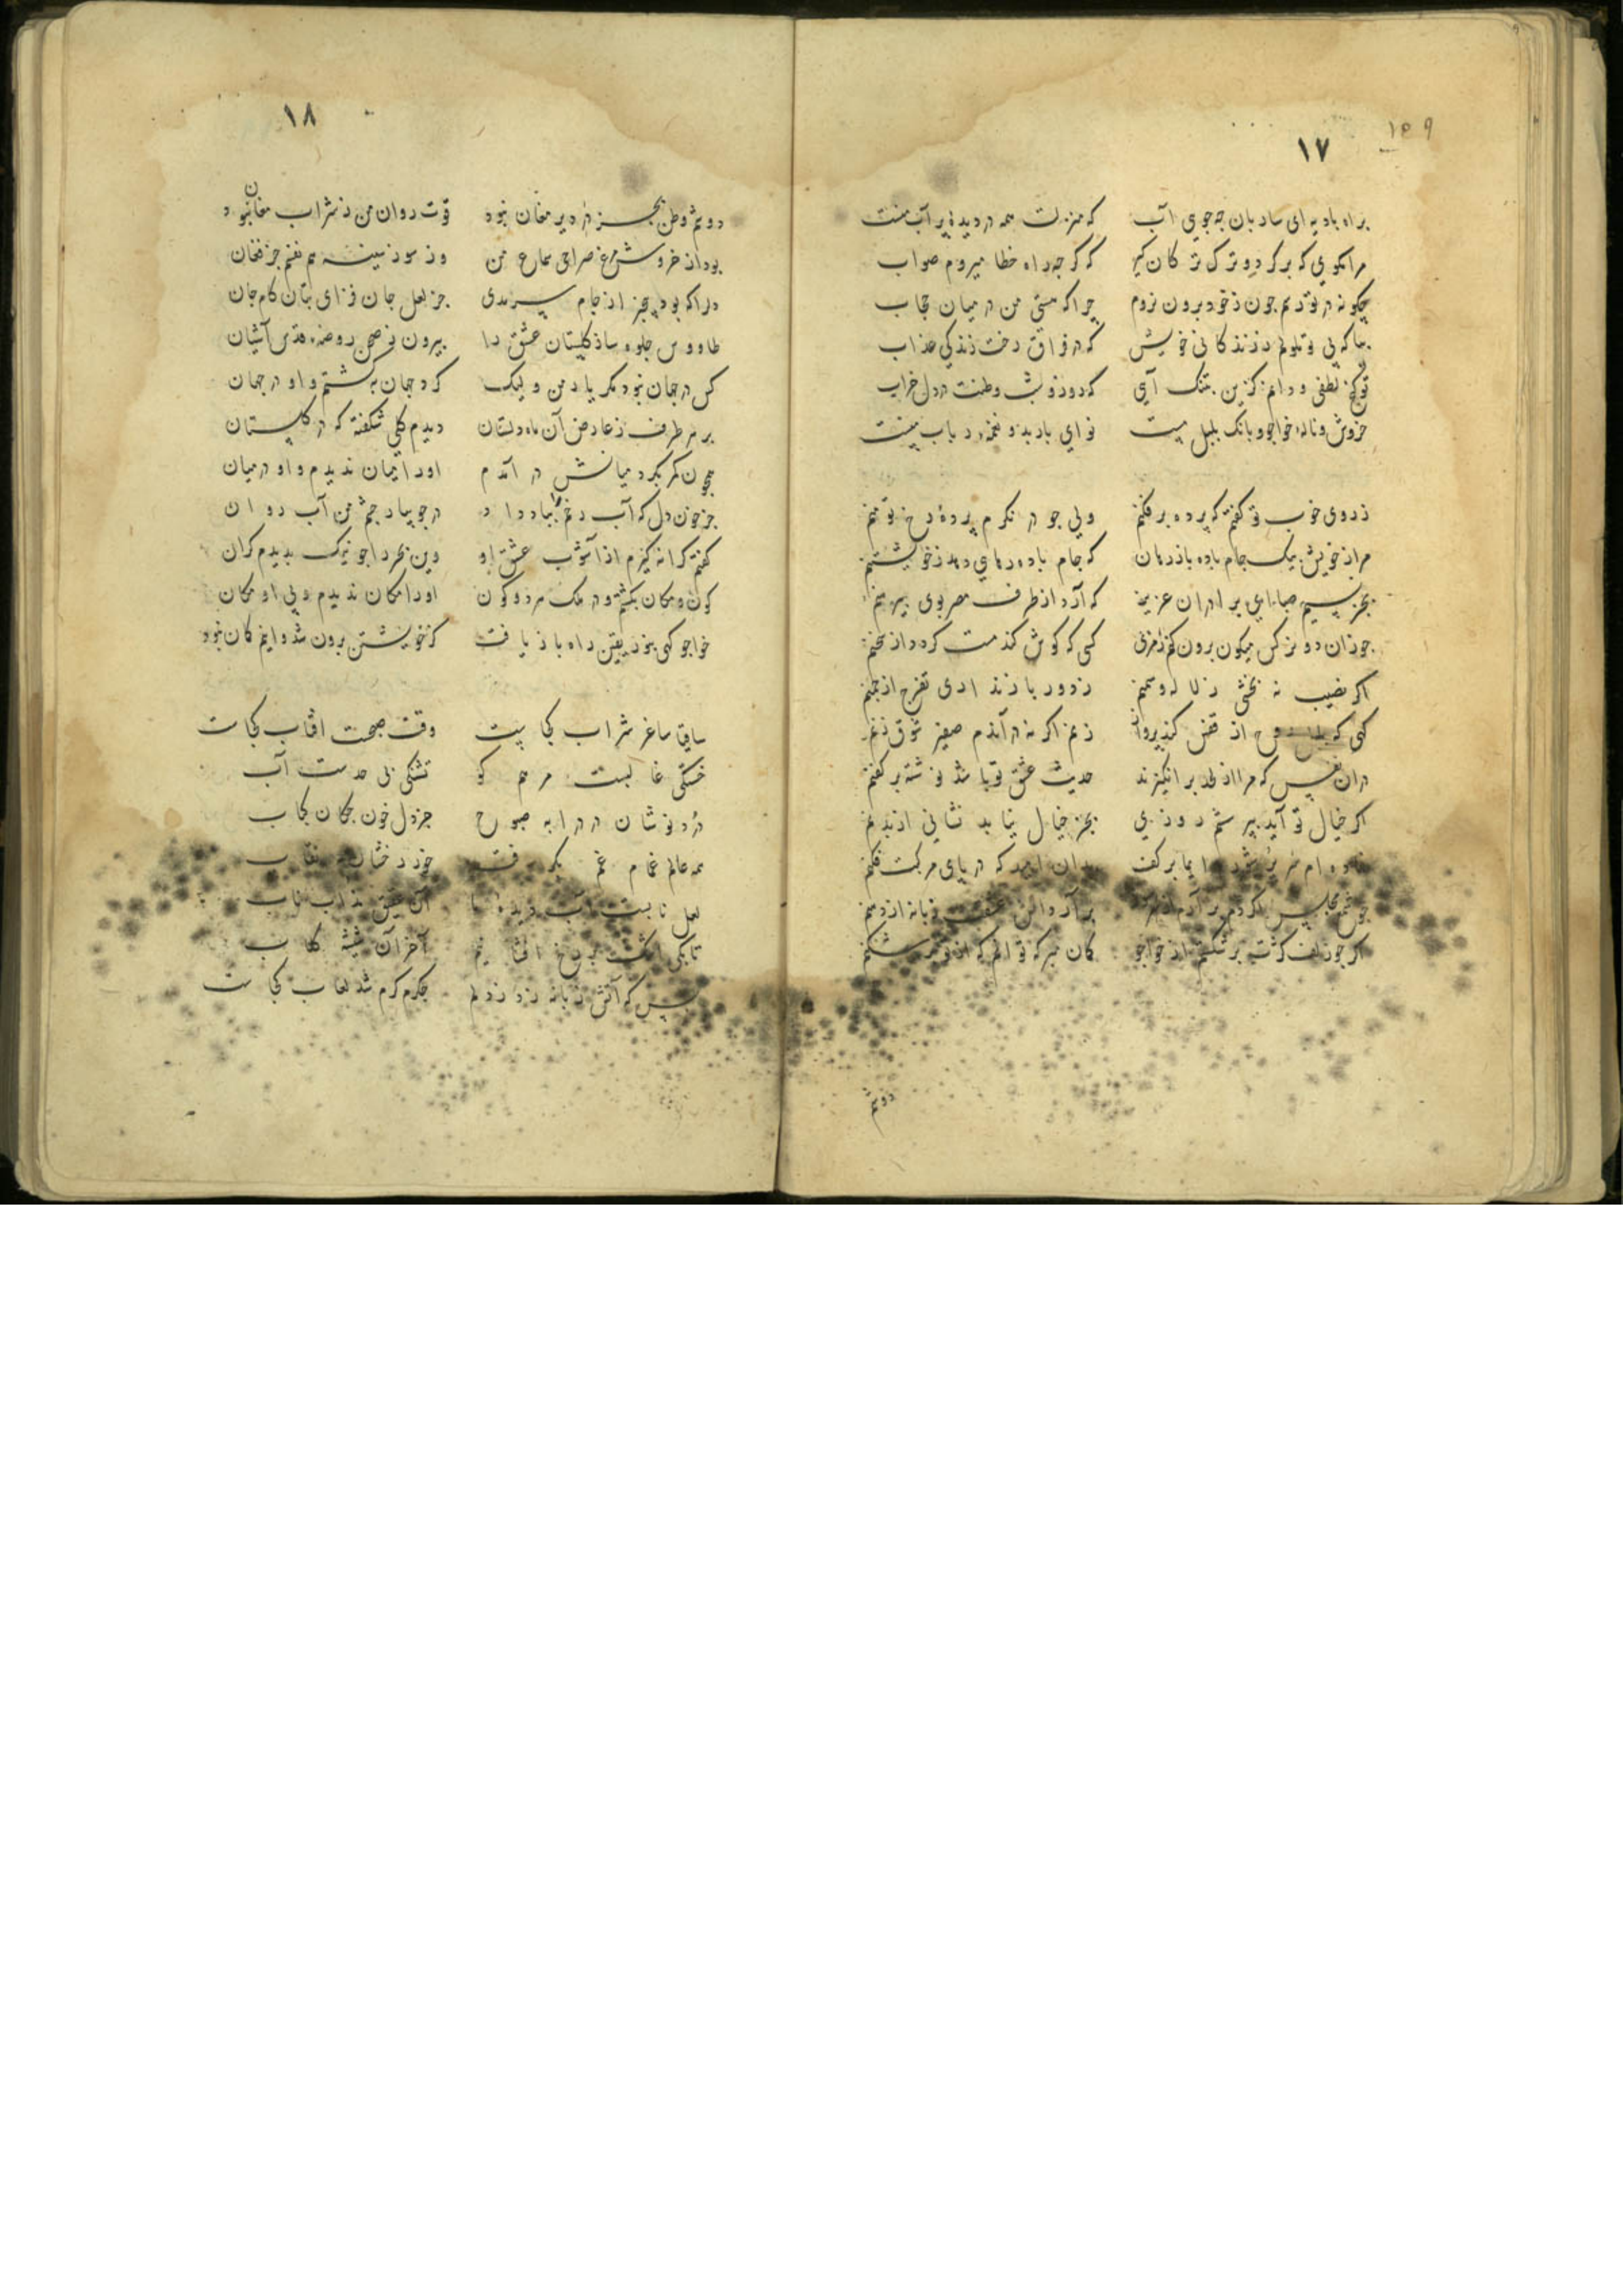 ۱۷
براه بادیه ای ساربان چه جویی آب که منزلت همه در دیدهٔ پر آب منست
مرا مگوی که برگرد و ترک ترکان گیر که گرچه راه خطا میروم صواب
چگونه در تو رسم چون ز خود برون نروم چرا که هستی من در میان حجاب
بیا که بی تو ملولم ز زندگانی خویش که در فراق رخت زندگی عذاب
تو گنج لطفی و دانم کزین به تنگ آیی که روز و شب وطنت در دل خراب
خروش و نالهٔ خواجو و بانگ بلبل مست نوای باربد و نغمهٔ رباب منست
ز روی خوب تو گفتم که پرده برفکنم ولی چو در نگرم پردهٔ رخ تو منم
مرا ز خویش بیک جام باده باز رهان که جام باده رهایی دهد ز خویشتنم
بجز نسیم صبا ای برادران عزیز که آرد از طرف مصر بوی پیرهنم
چو زان دو نرگس میگون برون کنم رمزی کسی که گوش کند مست گردد از سخنم
اگر نصیب نه بخشی ز لاله و سمنم ز دور باز ندادی تفرج از چمنم
کسی که روح از قفس کند پرواز نیم اگر نه در آندم صفیر شوق زنم
در آن نفس که مرا از لحد برانگیزند حدیث عشق تو باشد نوشته بر کفنم
اگر خیال تو آید به پرسشم روزی بجز خیال نیابد نشانی از بدنم
که در پای مرکبت فکنم
اگر چو زلف کژت بر شکستم از خواجو گمان مبر که توانم که از تو برشکنم
دوشم
۱۸
دوشم وطن بجز در دیر مغان نبود قوت روان من ز شراب مغان نبود
بود از خروش مرغ صراحی سماع من وز سوز سینه هم نفسم جز فغان
دل را که بود بیخبر از جام سرمدی جز لعل جان فزای بتان کام جان
طاووس جلوه ساز گلستان عشق را بیرون ز صحن روضهٔ قدس آشیان
کس در جهان نبود مگر یار من ولیک گرد جهان بگشتم و او در جهان
بر هر طرف ز عارض آن ماه دلستان دیدم گلی شکفته که در گلستان
چون کمر بگرد میانش در آمدم او را میان ندیدم و او در میان
جز خون دل که آب رخم را بباد داد در جویبار چشم من آب روان
گفتم کرانه گیرم از آشوب عشق او وین بحر را چو نیک بدیدم کران
کون و مکان بگشتم و در ملک هر دو کون او را مکان ندیدم و بی او مکان
خواجو کسی بخود یقین راه باز یافت کز خویشتن برون شد و اینم گمان نبود
ساقیا ساغر شراب کجاست وقت صبحست آفتاب کجاست
خستگی غالبست مرهم کو تشنگی بی حدست آب
درد نوشان درد را به صبوح جز دل خون چکان کباب
همه عالم غمام غم بگرفت خور رخشان نقاب
لعل نابست آب دیدهٔ ما آن عقیق مذاب ناب
تا بکی اشک بر رخ افشانیم آخر آن شیشهٔ گلاب
بس که آتش زبانه زد ز دلم جگرم گرم شد لعاب کجاست